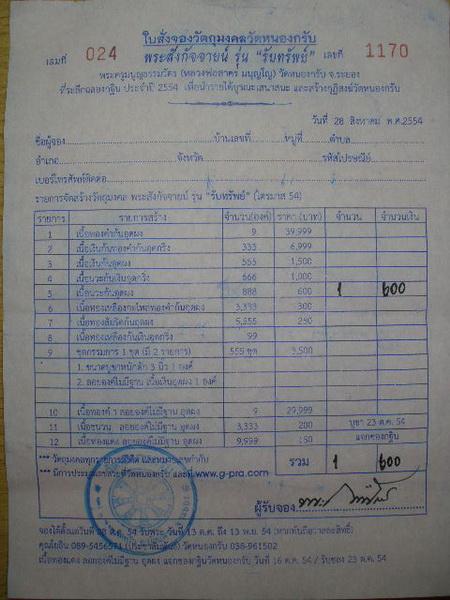 ใบสั่งจองวัตถุมงคลวัดหนองกรับ
เล่มที่ 024 พระสังกัจจายน์ รุ่น "รับทรัพย์" เลขที่ 1170
พระครูมนูญธรรมวัตร (หลวงพ่อสาคร มนุญโญ) วัดหนองกรับ จ.ระยอง
ที่ระลึกฉลองกฐิน ประจำปี 2554 เพื่อนำรายได้บูรณะเสนาสนะ และสร้างกุฏิสงฆ์วัดหนองกรับ
วันที่ 28 สิงหาคม พ.ศ.2554
ชื่อผู้จอง บ้านเลขที่ หมู่ที่ ตำบล
อำเภอ จังหวัด รหัสไปรษณีย์
เบอร์โทรศัพท์ติดต่อ
รายการจัดสร้างวัตถุมงคล พระสังกัจจายน์ รุ่น "รับทรัพย์" (ไตรมาส 54)
รายการ รายการสร้าง จำนวน(องค์) ราคา (บาท) จำนวน จำนวนเงิน
1 เนื้อทองคำก้นอุดผง 9 39,999
2 เนื้อเงินก้นทองคำอุดกริ่ง 333 6,999
3 เนื้อเงินก้นอุดผง 555 1,500
4 เนื้อนวะก้นเงินอุดกริ่ง 666 1,000
5 เนื้อนวะก้นอุดผง 888 600 1 600
6 เนื้อทองเหลืองกะไหล่ทองคำก้นอุดผง 3,333 300
7 เนื้อทองสัมริดก้นอุดผง 5,555 250
8 เนื้อทองเหลืองก้นเงินอุดกริ่ง 99
9 ชุดกรรมการ 1 ชุด (มี 2 รายการ) 555 ชุด 3,500
1. ขนาดบูชาหน้าตัก 3 นิ้ว 1 องค์
2. ลอยองค์ไม่มีฐาน เนื้อเงินอุดผง 1 องค์
10 เนื้อทองคำ ลอยองค์ไม่มีฐาน อุดผง 9 29,999
11 เนื้อชนวน ลอยองค์ไม่มีฐาน อุดผง 3,333 200 บูชา 23 ต.ค. 54
12 เนื้อทองแดง ลอยองค์ไม่มีฐาน อุดผง 9,999 150 แจกของกฐิน
*** วัตถุมงคลทุกรายการมีโค๊ด และหมายเลขกำกับ รวม 1 600
*** มีการประมูลเลขสวยที่วัดหนองกรับ และwww.g-pra.com
ผู้รับจอง
จองได้ตั้งแต่วันที่ ส.ค. 54 รับพระ วันที่ 13 ต.ค. ถึง 13 พ.ย. 54
คุณโยธิน 089-5456571 วัดหนองกรับ 038-961502
เนื้อทองแดง ลอยองค์ไม่มีฐาน อุดผง แจกของกฐินวัดหนองกรับ วันที่ 16 ต.ค. 54 / รับของ 23 ต.ค. 54